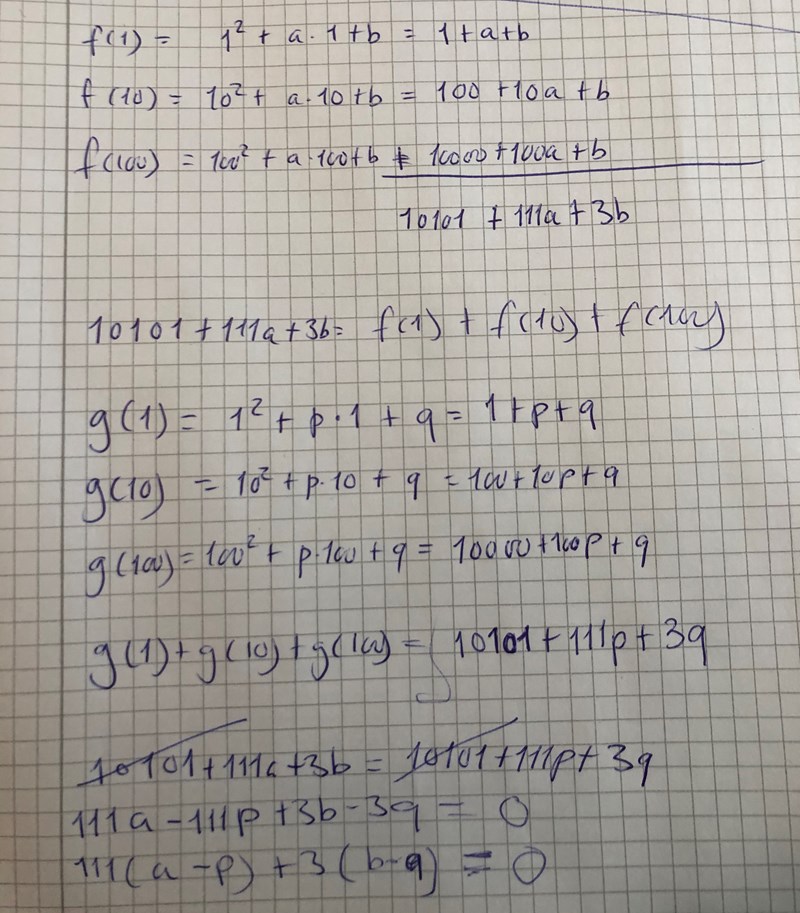 f(1) = 1² + a·1+b = 1+a+b
f(10) = 10² + a·10+b = 100 +10a +b
f(100) = 100² + a·100+b + 10000+100a+b
10101 + 111a+3b
10101+111a+3b= f(1) + f(10) + f(100)
g(1) = 1² + p·1 + q = 1+p+q
g(10) = 10² + p·10 + q = 100+10p+q
g(100)=100² + p·100 + q = 10000+100p+q
g(1)+g(10)+g(100) = 10101+111p+3q
10101+111a+3b = 10101+111p+3q
111a-111p+3b-3q = 0
111(a-p)+3(b-q) = 0